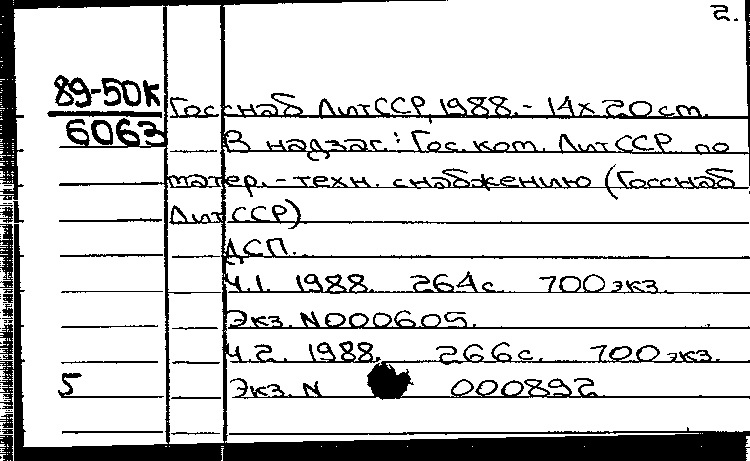 2.
89-50К Госснаб ЛитССР, 1988.- 14х20cm.
6063 В надзаг.: Гос. ком. ЛитССР по
матер.-техн. снабжению (Госснаб
ЛитССР)
ДСП.
Ч.1. 1988. 264с 700 экз.
Экз. N000605.
Ч.2. 1988. 266с. 700 экз.
5 Экз. N 000892